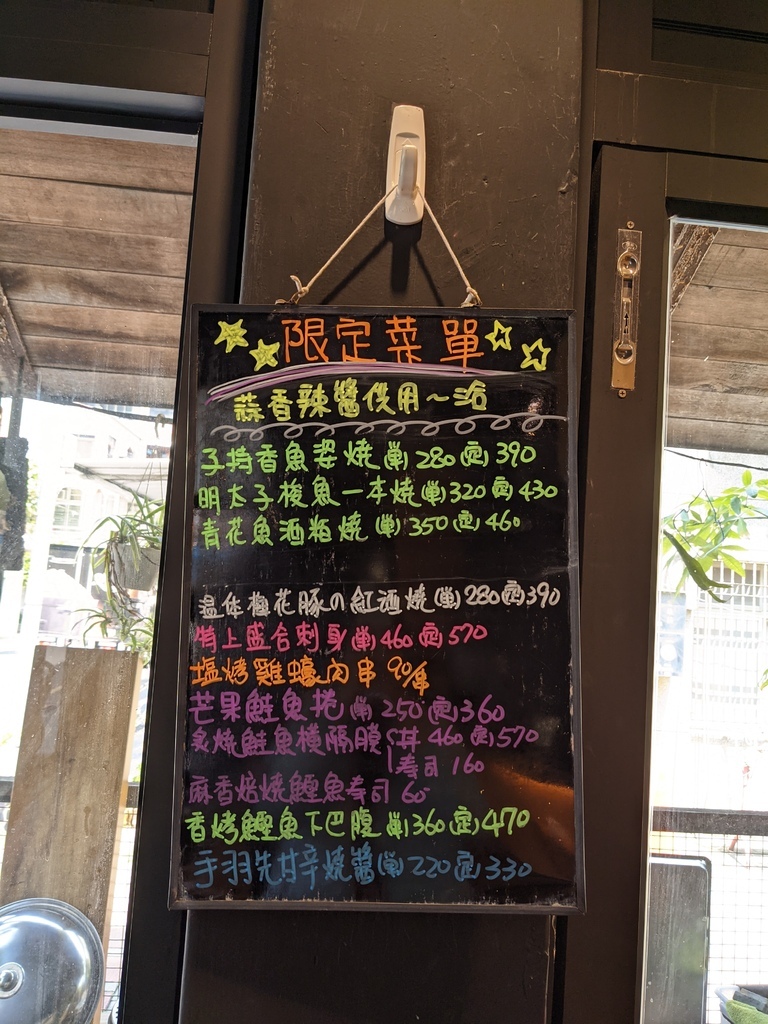 限定菜單
蒜香辣醬使用～洽
子持香魚姿燒(單)280(定)390
明太子秋刀魚一本燒(單)320(定)430
青花魚酒粕燒(單)350(定)460
温体梅花豚の紅酒燒(單)280(定)390
特上盛合刺身(單)460(定)570
塩烤雞蠔肉串 90/串
芒果鮭魚捲(單)250(定)360
炙燒鮭魚橫隔膜 丼 460(定)570
壽司 160
麻香焙燒鰹魚壽司 60
香烤鰹魚下巴腹(單)360(定)470
手羽先甘辛燒醬(單)220(定)330